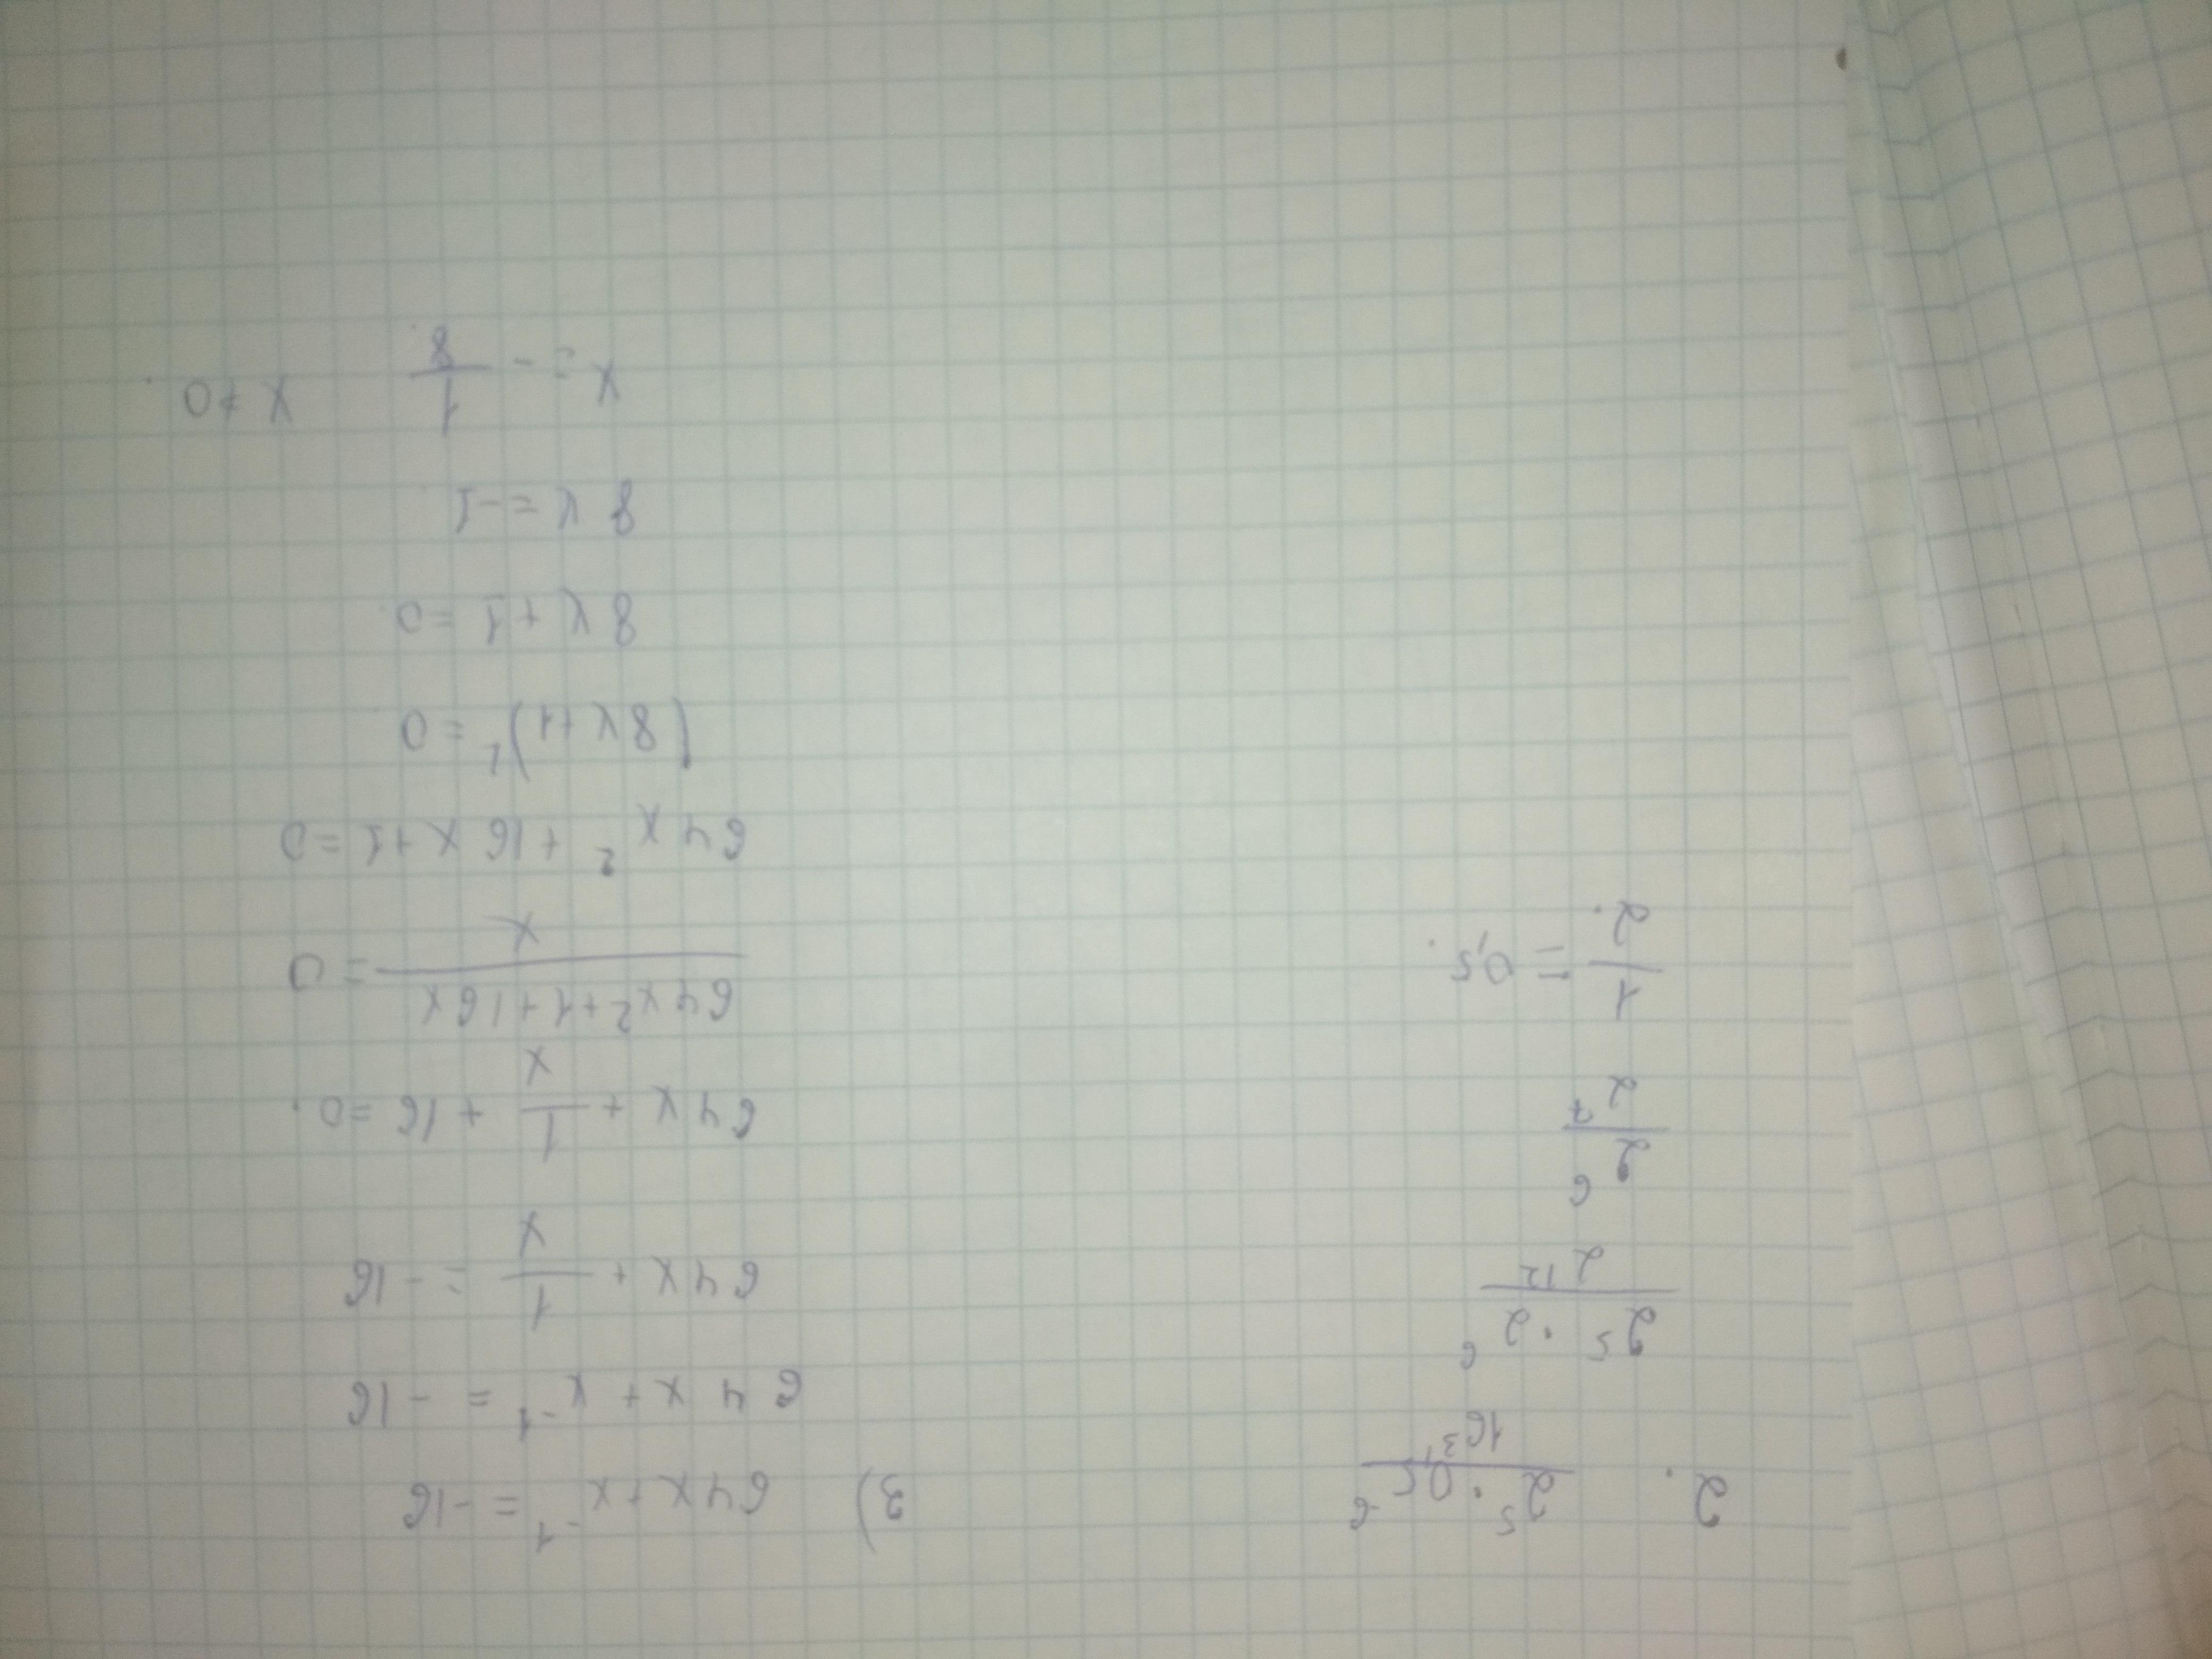 2. 2⁵ · 0,5⁻⁶
16³
2⁵ · 2⁶
2¹²
2⁶
2⁷
1
2 = 0,5.
3) 64x + x⁻¹ = -16
64x + x⁻¹ = -16
64x + 1/x = -16
64x + 1/x + 16 = 0.
64x² + 1 + 16x / x = 0
64x² + 16x + 1 = 0
(8x + 1)² = 0
8x + 1 = 0
8x = -1
x = - 1/8 x ≠ 0.